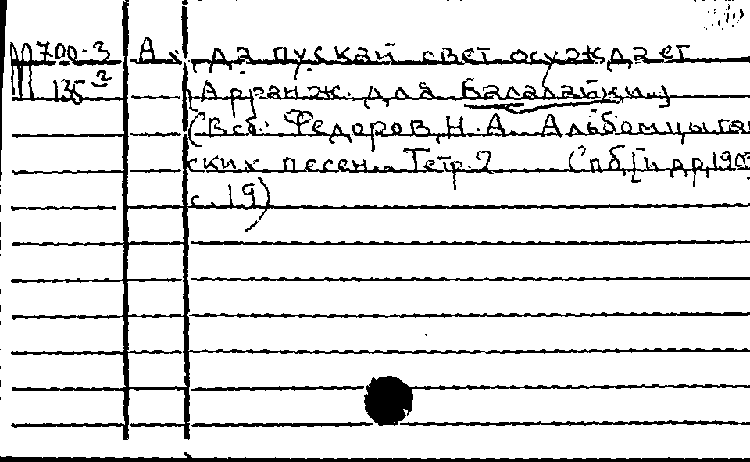 М 700-3 Ах, да пускай свет осуждает
135-2 [Арранж. для Балалайки]
(В сб: Федоров, Н. А. Альбом цыган
ских песен. Тетр. 2 Спб, [и др, 190
с. 19)